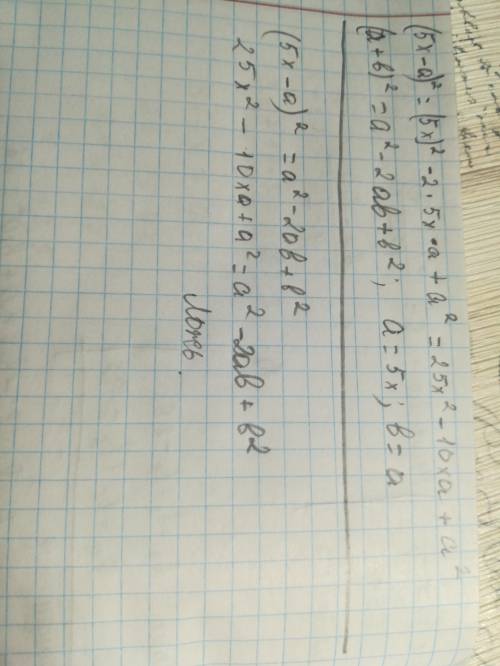 (5x-a)² = (5x)² - 2·5x·a + a² = 25x² - 10xa + a²
(a+b)² = a² - 2ab + b²; a = 5x; b = a
(5x-a)² = a² - 2ab + b²
25x² - 10xa + a² = a² - 2ab + b²
Ложь.